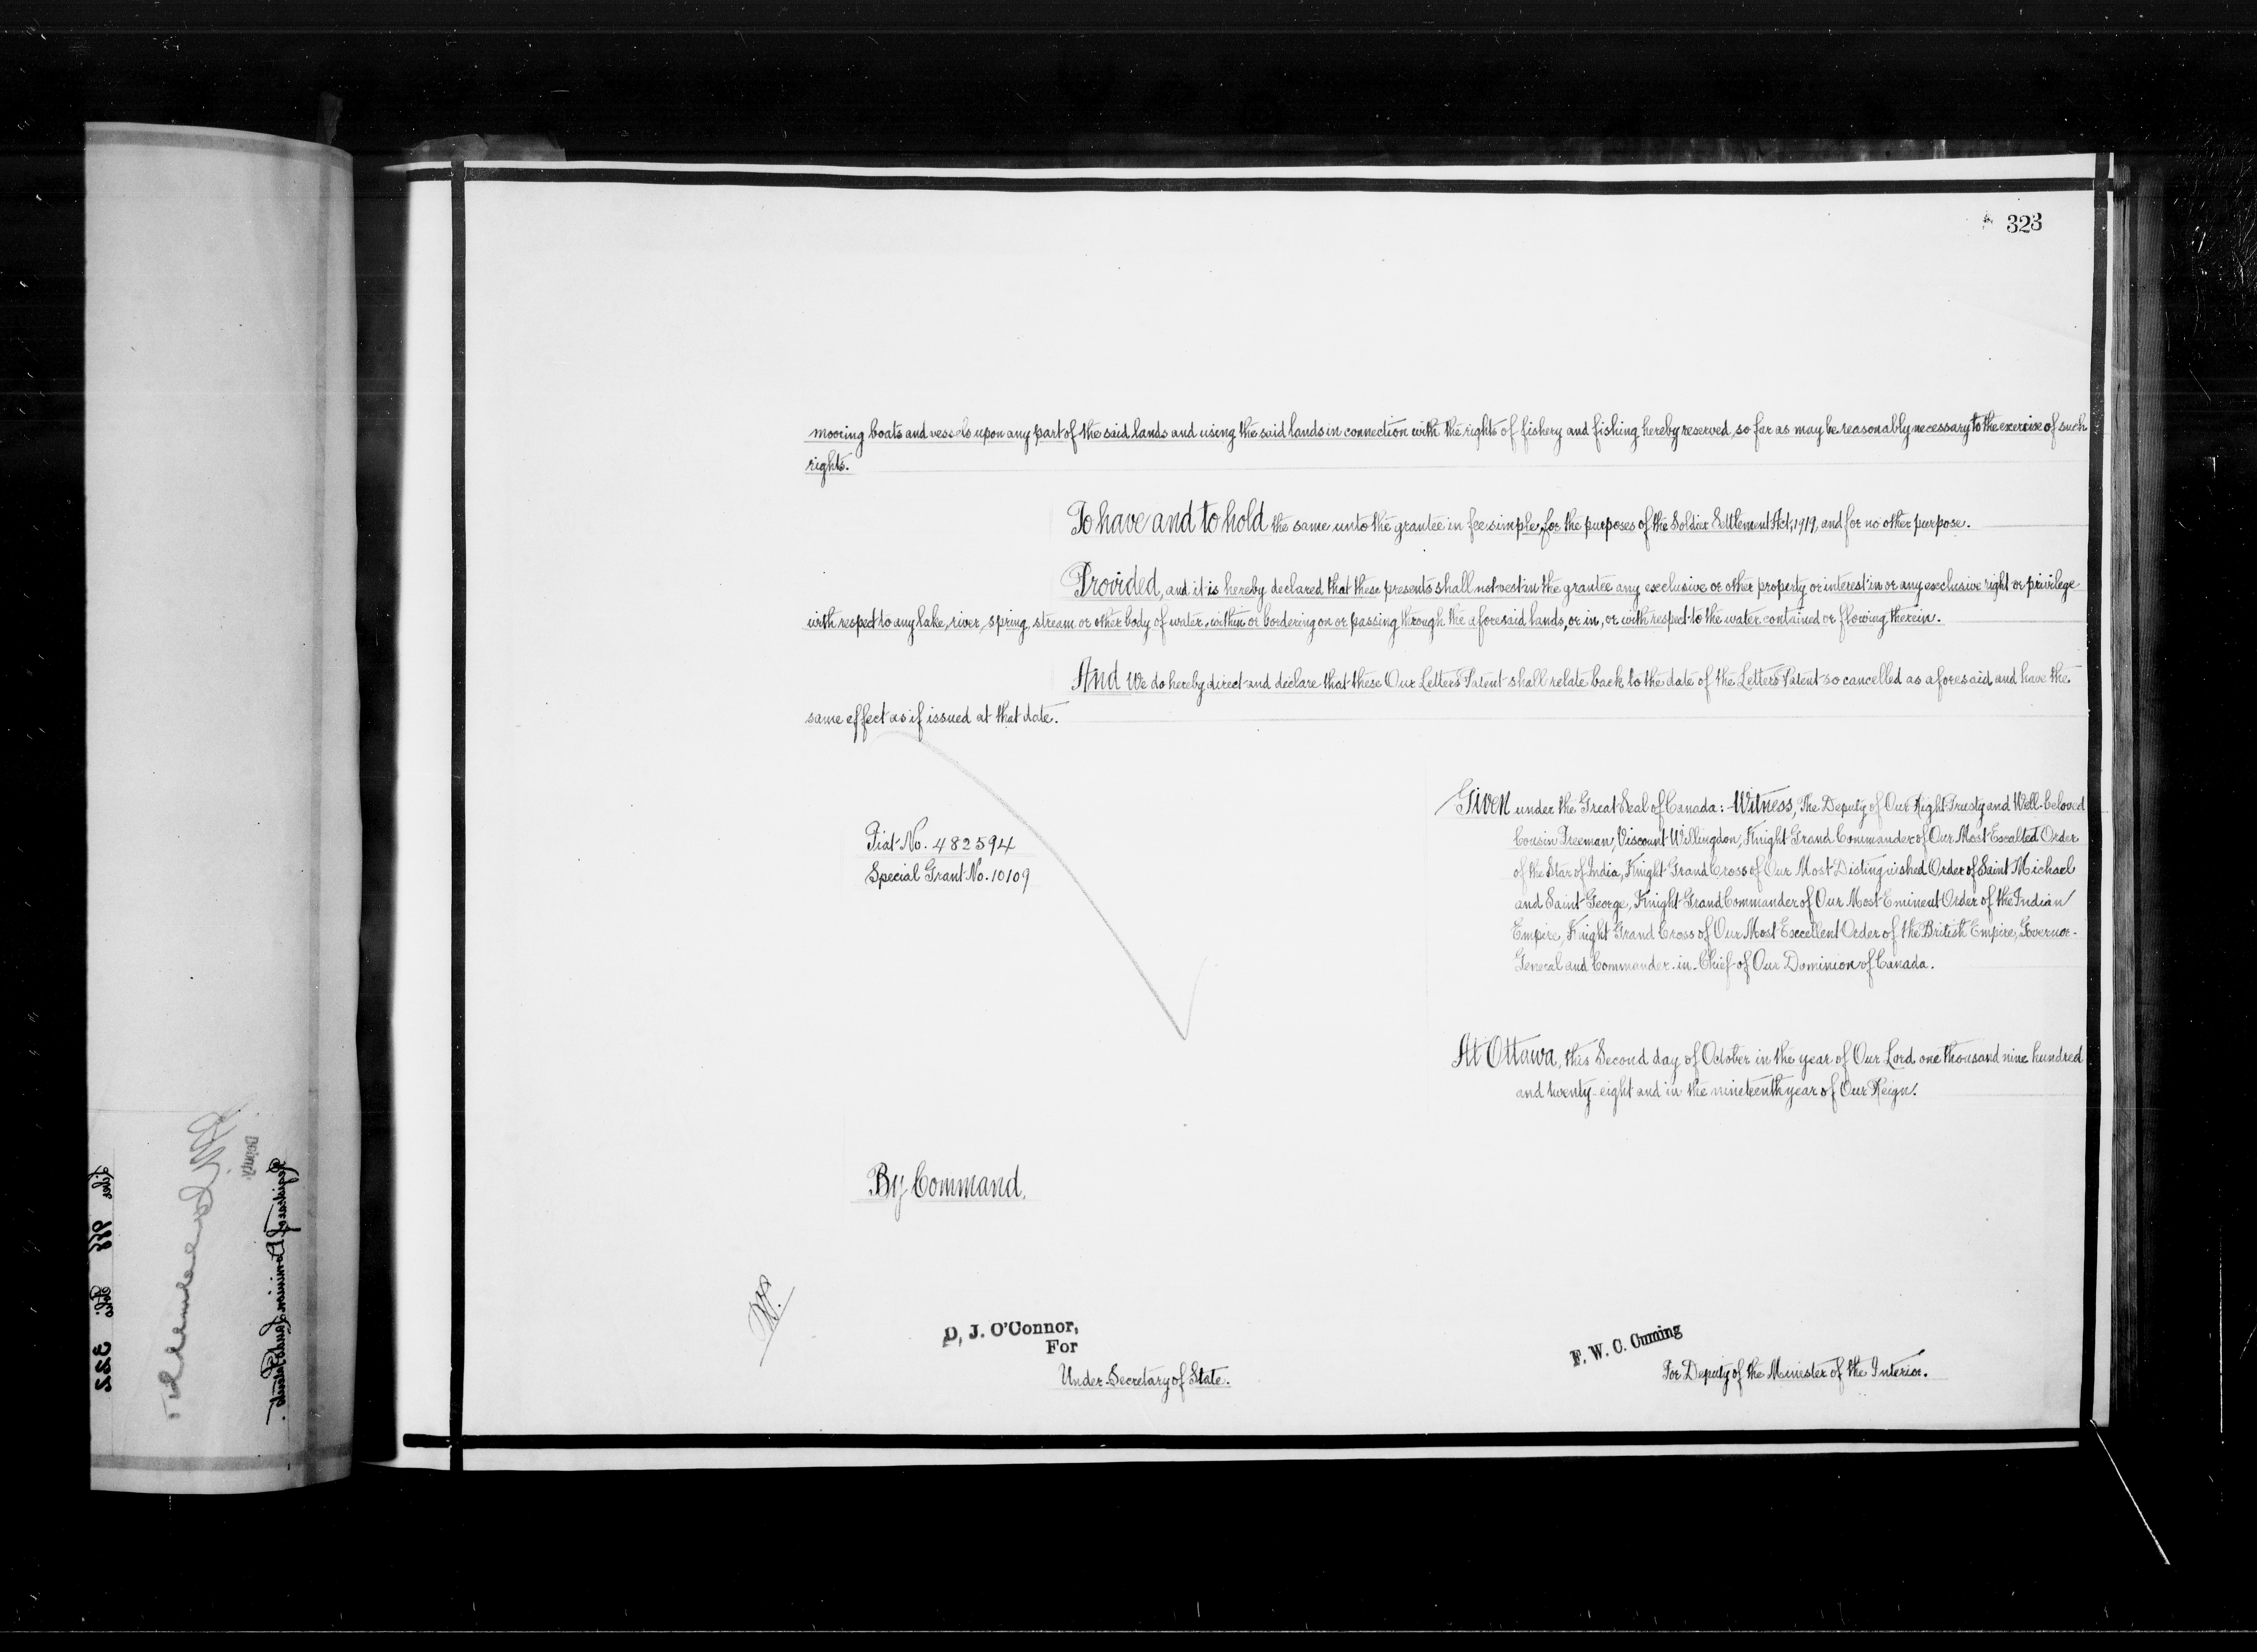 323
mooring boats and vessels upon any part of the said lands and using the said lands in connection with the rights of fishery and fishing hereby reserved, so far as may be reasonably necessary to the exercise of such
rights.
To have and to hold the same unto the grantee in fee simple, for the purposes of the Soldier Settlement Act, 1919, and for no other purpose.
Provided, and it is hereby declared that these presents shall not vest in the grantee any exclusive or other property or interest in or any exclusive right or privilege
with respect to any lake, river, spring, stream or other body of water, within or bordering on or passing through the aforesaid lands, or in, or with respect to the water contained or flowing therein.
And We do hereby direct and declare that these Our Letters Patent shall relate back to the date of the Letters Patent so cancelled as aforesaid and have the
same effect as if issued at that date.
Fiat No. 482594
Special Grant No. 10109
Given under the Great Seal of Canada: Witness, The Deputy of Our Right Trusty and Well-beloved
Cousin Freeman, Viscount Willingdon, Knight Grand Commander of Our Most Exalted Order
of the Star of India, Knight Grand Cross of Our Most Distinguished Order of Saint Michael
and Saint George, Knight Grand Commander of Our Most Eminent Order of the Indian
Empire, Knight Grand Cross of Our Most Excellent Order of the British Empire, Governor-
General and Commander-in-Chief of Our Dominion of Canada.
At Ottawa, this Second day of October in the year of Our Lord one thousand nine hundred
and twenty-eight and in the nineteenth year of Our Reign.
By Command,
D. J. O'Connor,
For
Under-Secretary of State.
F. W. C. Cuming
For Deputy of the Minister of the Interior.
Registrar of Dominion Lands Patents.
Liber 998 Folio 322